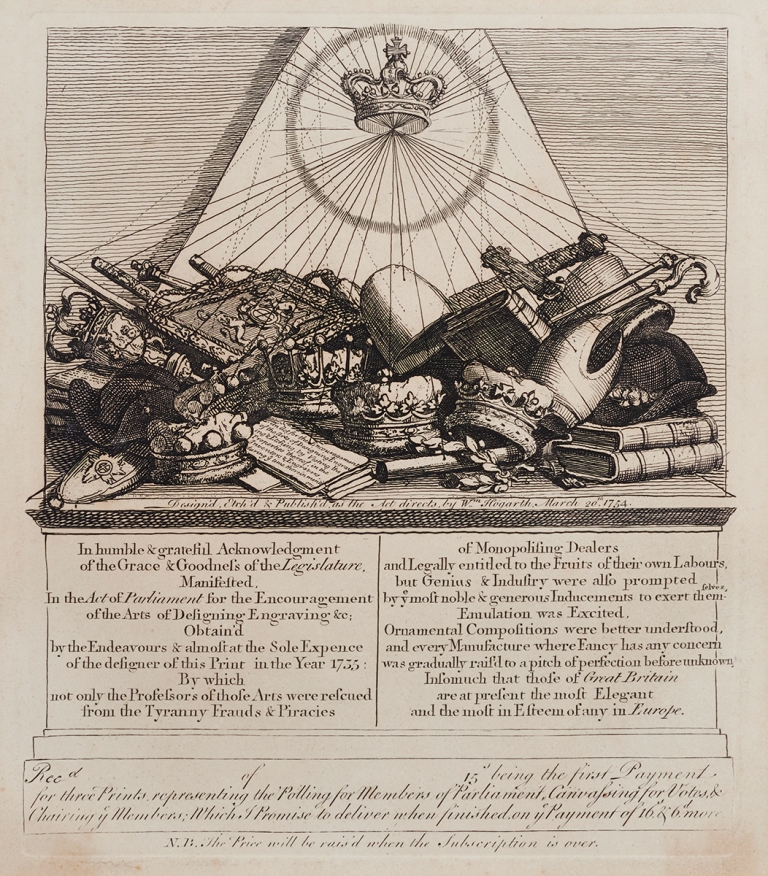 Design'd, Etch'd & Publish'd, as the Act directs, by Wm. Hogarth, March 20th. 1754.
In humble & gratefull Acknowledgment
of the Grace & Goodneſs of the Legislature,
Manifested,
In the Act of Parliament for the Encouragement
of the Arts of Designing Engraving &c;
Obtain'd
by the Endeavours & almost at the Sole Expence
of the designer of this Print in the Year 1735:
By which
not only the Profeſsors of those Arts were rescued
from the Tyranny Frauds & Piracies
of Monopolising Dealers
and Legally entitled to the Fruits of their own Labours,
but Genius & Industry were also prompted
by ye most noble & generous Inducements to exert themselves,
Emulation was Excited,
Ornamental Compositions were better understood,
and every Manufacture where Fancy has any concern
was gradually rais'd to a pitch of perfection before unknown,
Insomuch that those of Great-Britain
are at present the most Elegant
and the most in Esteem of any in Europe.
Recd of 15s being the first Payment
for three Prints representing the Polling for Members of Parliament, Canvaſsing for Votes, &
Chairing ye Members; Which I Promise to deliver when finished, on ye Payment of 16s & 6d more
N.B. The Price will be rais'd when the Subscription is over.